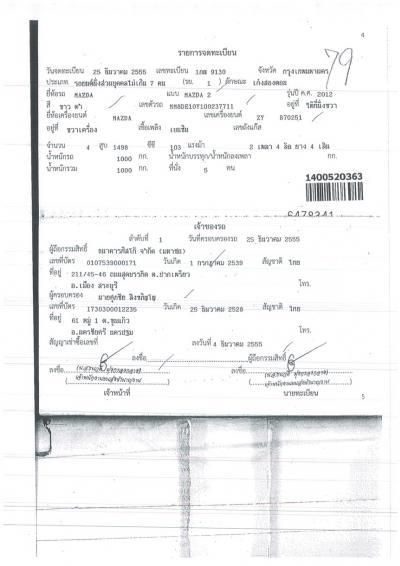 4
รายการจดทะเบียน
79
วันจดทะเบียน 25 ธันวาคม 2555 เลขทะเบียน 1กท 9130 จังหวัด กรุงเทพมหานคร
ประเภท รถยนต์นั่งส่วนบุคคลไม่เกิน 7 คน (รย. 1 ) ลักษณะ เก๋งสองตอน
ยี่ห้อรถ MAZDA แบบ MAZDA 2 รุ่นปี ค.ศ. 2012
สี ขาว ดำ เลขตัวรถ อยู่ที่
ยี่ห้อเครื่องยนต์ MAZDA เลขเครื่องยนต์ ZY 870251
อยู่ที่ ขวาเครื่อง เชื้อเพลิง เบนซิน เลขถังแก๊ส
จำนวน 4 สูบ 1498 ซีซี 103 แรงม้า 2 เพลา 4 ล้อ ยาง 4 เส้น
น้ำหนักรถ 1000 กก. น้ำหนักบรรทุก/น้ำหนักลงเพลา กก.
น้ำหนักรวม 1000 กก. ที่นั่ง 5 คน
1400520363
เจ้าของรถ
ลำดับที่ 1 วันที่ครอบครองรถ 25 ธันวาคม 2555
ผู้ถือกรรมสิทธิ์ ธนาคารทิสโก้ จำกัด (มหาชน)
เลขที่บัตร 0107539000171 วันเกิด 1 กรกฎาคม 2539 สัญชาติ ไทย
ที่อยู่ 211/45-46 ถนนสุดบรรทัด ต.ปากเพรียว
อ.เมือง สระบุรี โทร.
ผู้ครอบครอง
เลขที่บัตร 1730300012235 วันเกิด 25 ธันวาคม 2528 สัญชาติ ไทย
ที่อยู่ 61 หมู่ 1 ต.ขุนแก้ว
อ.นครชัยศรี นครปฐม โทร.
สัญญาเช่าซื้อเลขที่ ลงวันที่ 4 ธันวาคม 2555
ลงชื่อ ผู้ถือกรรมสิทธิ์
ลงชื่อ ลงชื่อ
เจ้าหน้าที่ นายทะเบียน
5